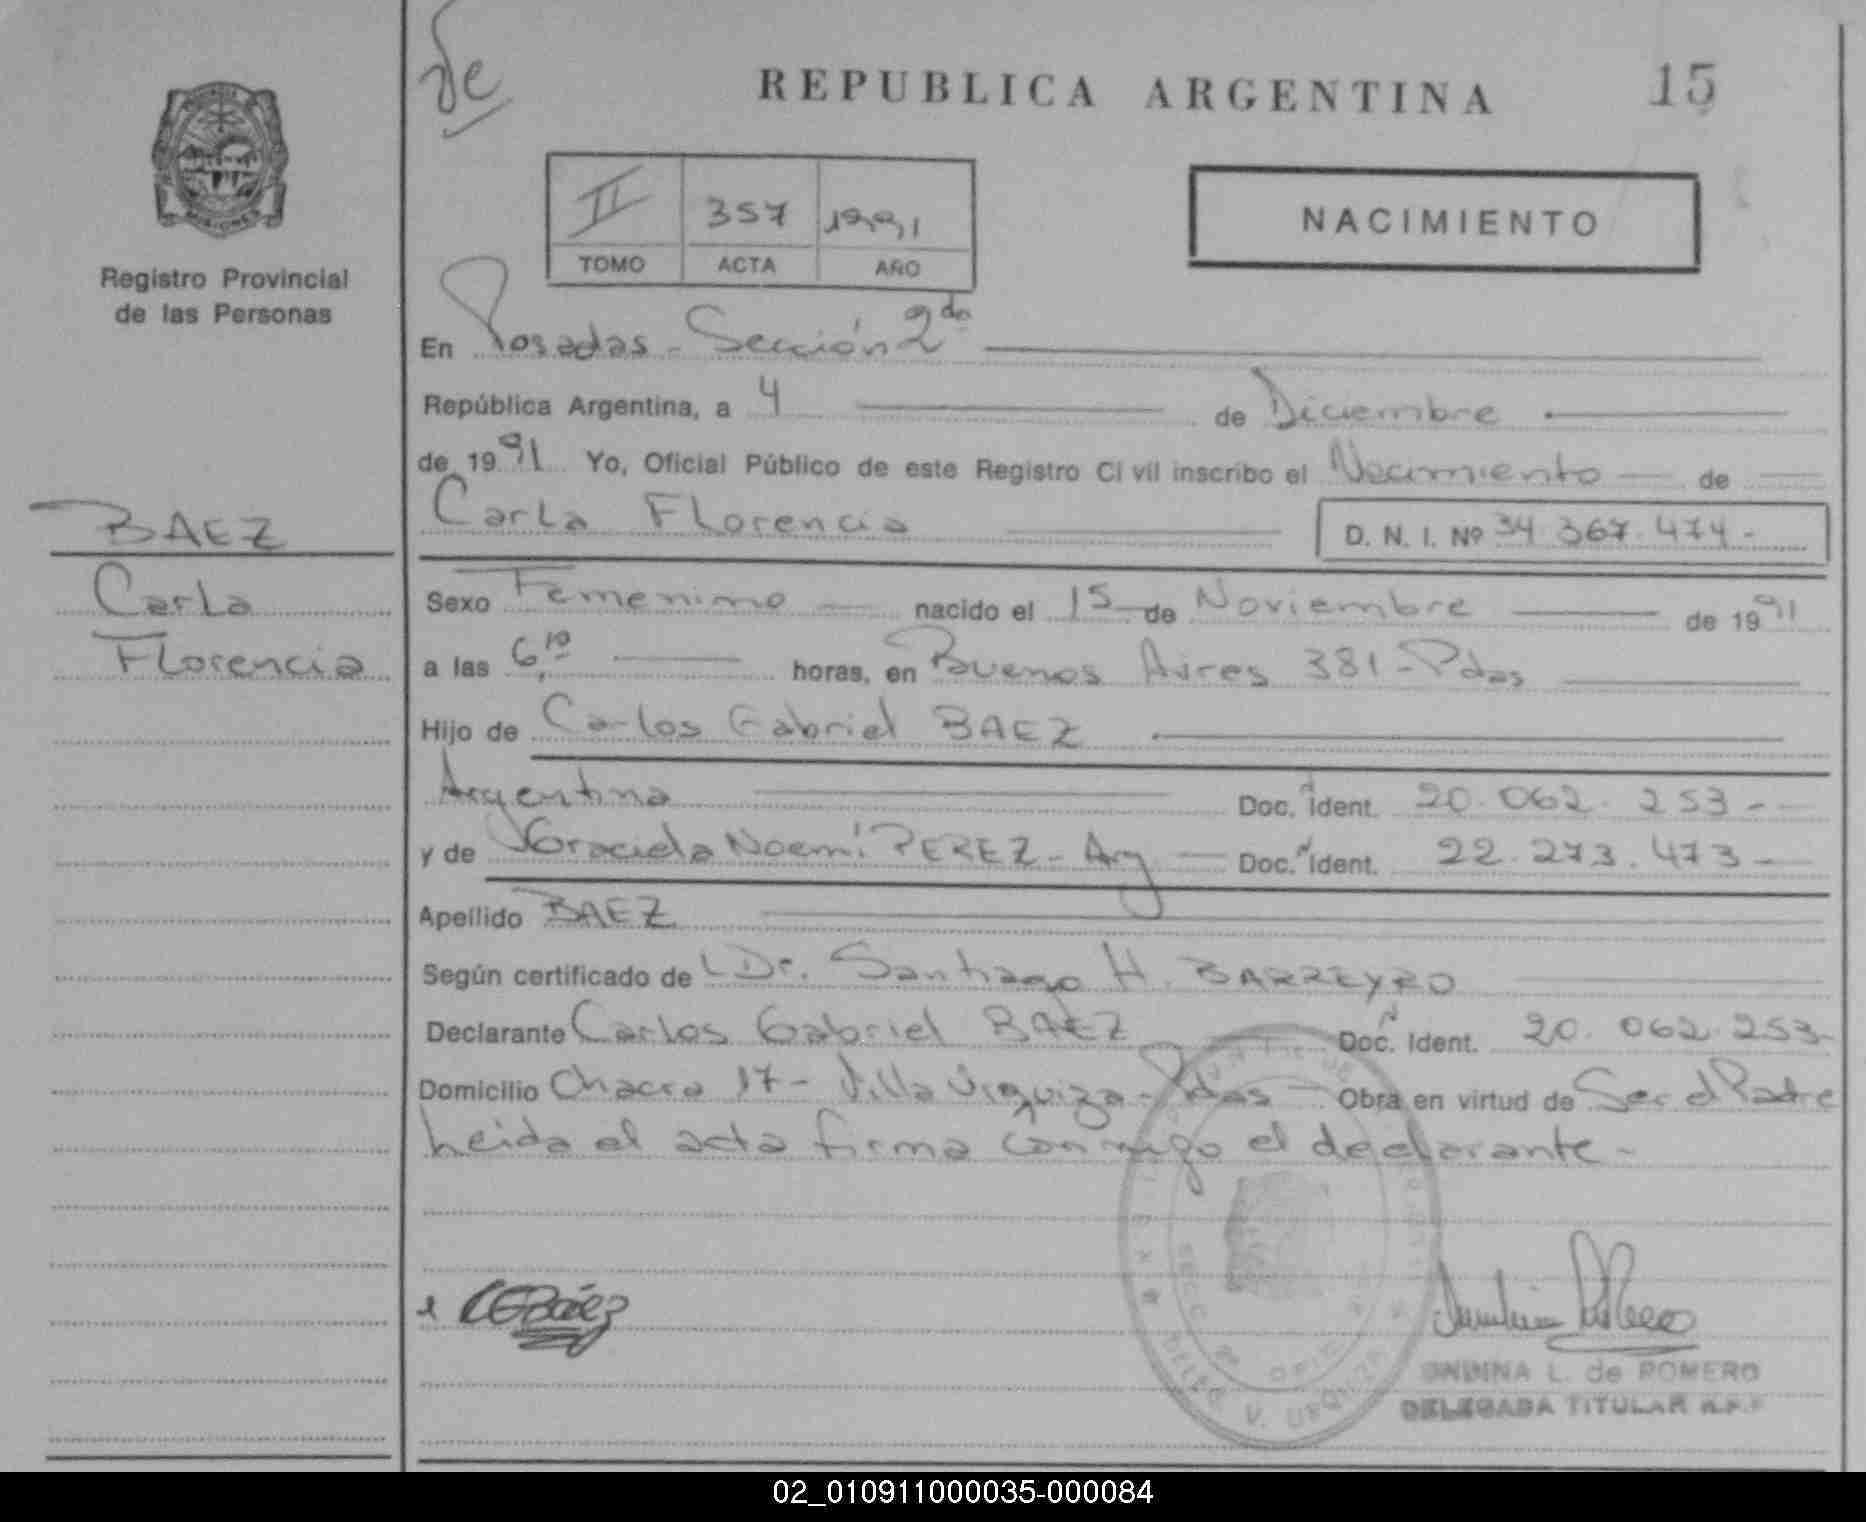 de
REPUBLICA ARGENTINA 15
MISIONES
Registro Provincial
de las Personas
II 357 1991
TOMO ACTA AÑO
NACIMIENTO
En Posadas - Sección 2da
República Argentina, a 4 de Diciembre
de 1991 Yo, Oficial Público de este Registro Ci vil inscribo el Nacimiento de
BAEZ
Carla
Florencia
Carla Florencia D. N. I. Nº 34.367.474-
Sexo Femenino nacido el 15 de Noviembre de 1991
a las 6,10 horas, en Buenos Aires 381 - Pdas
Hijo de Carlos Gabriel BAEZ
Argentina Doc. Ident. 20.062.253-
y de Graciela Noemí PEREZ - Arg Doc. Ident. 22.273.473-
Apellido BAEZ
Según certificado de Dr. Santiago H. BARREYRO
Declarante Carlos Gabriel BAEZ Doc. Ident. 20.062.253-
Domicilio Chacra 17 - Villa Urquiza - Pdas Obra en virtud de Ser el Padre
heida el acta firma conmigo el declarante -
CGBáez
SECC. 2ª OFIC
DELEG. V. URQUIZA
ONDINA L. de ROMERO
DELEGADA TITULAR R.P.P
02_010911000035-000084